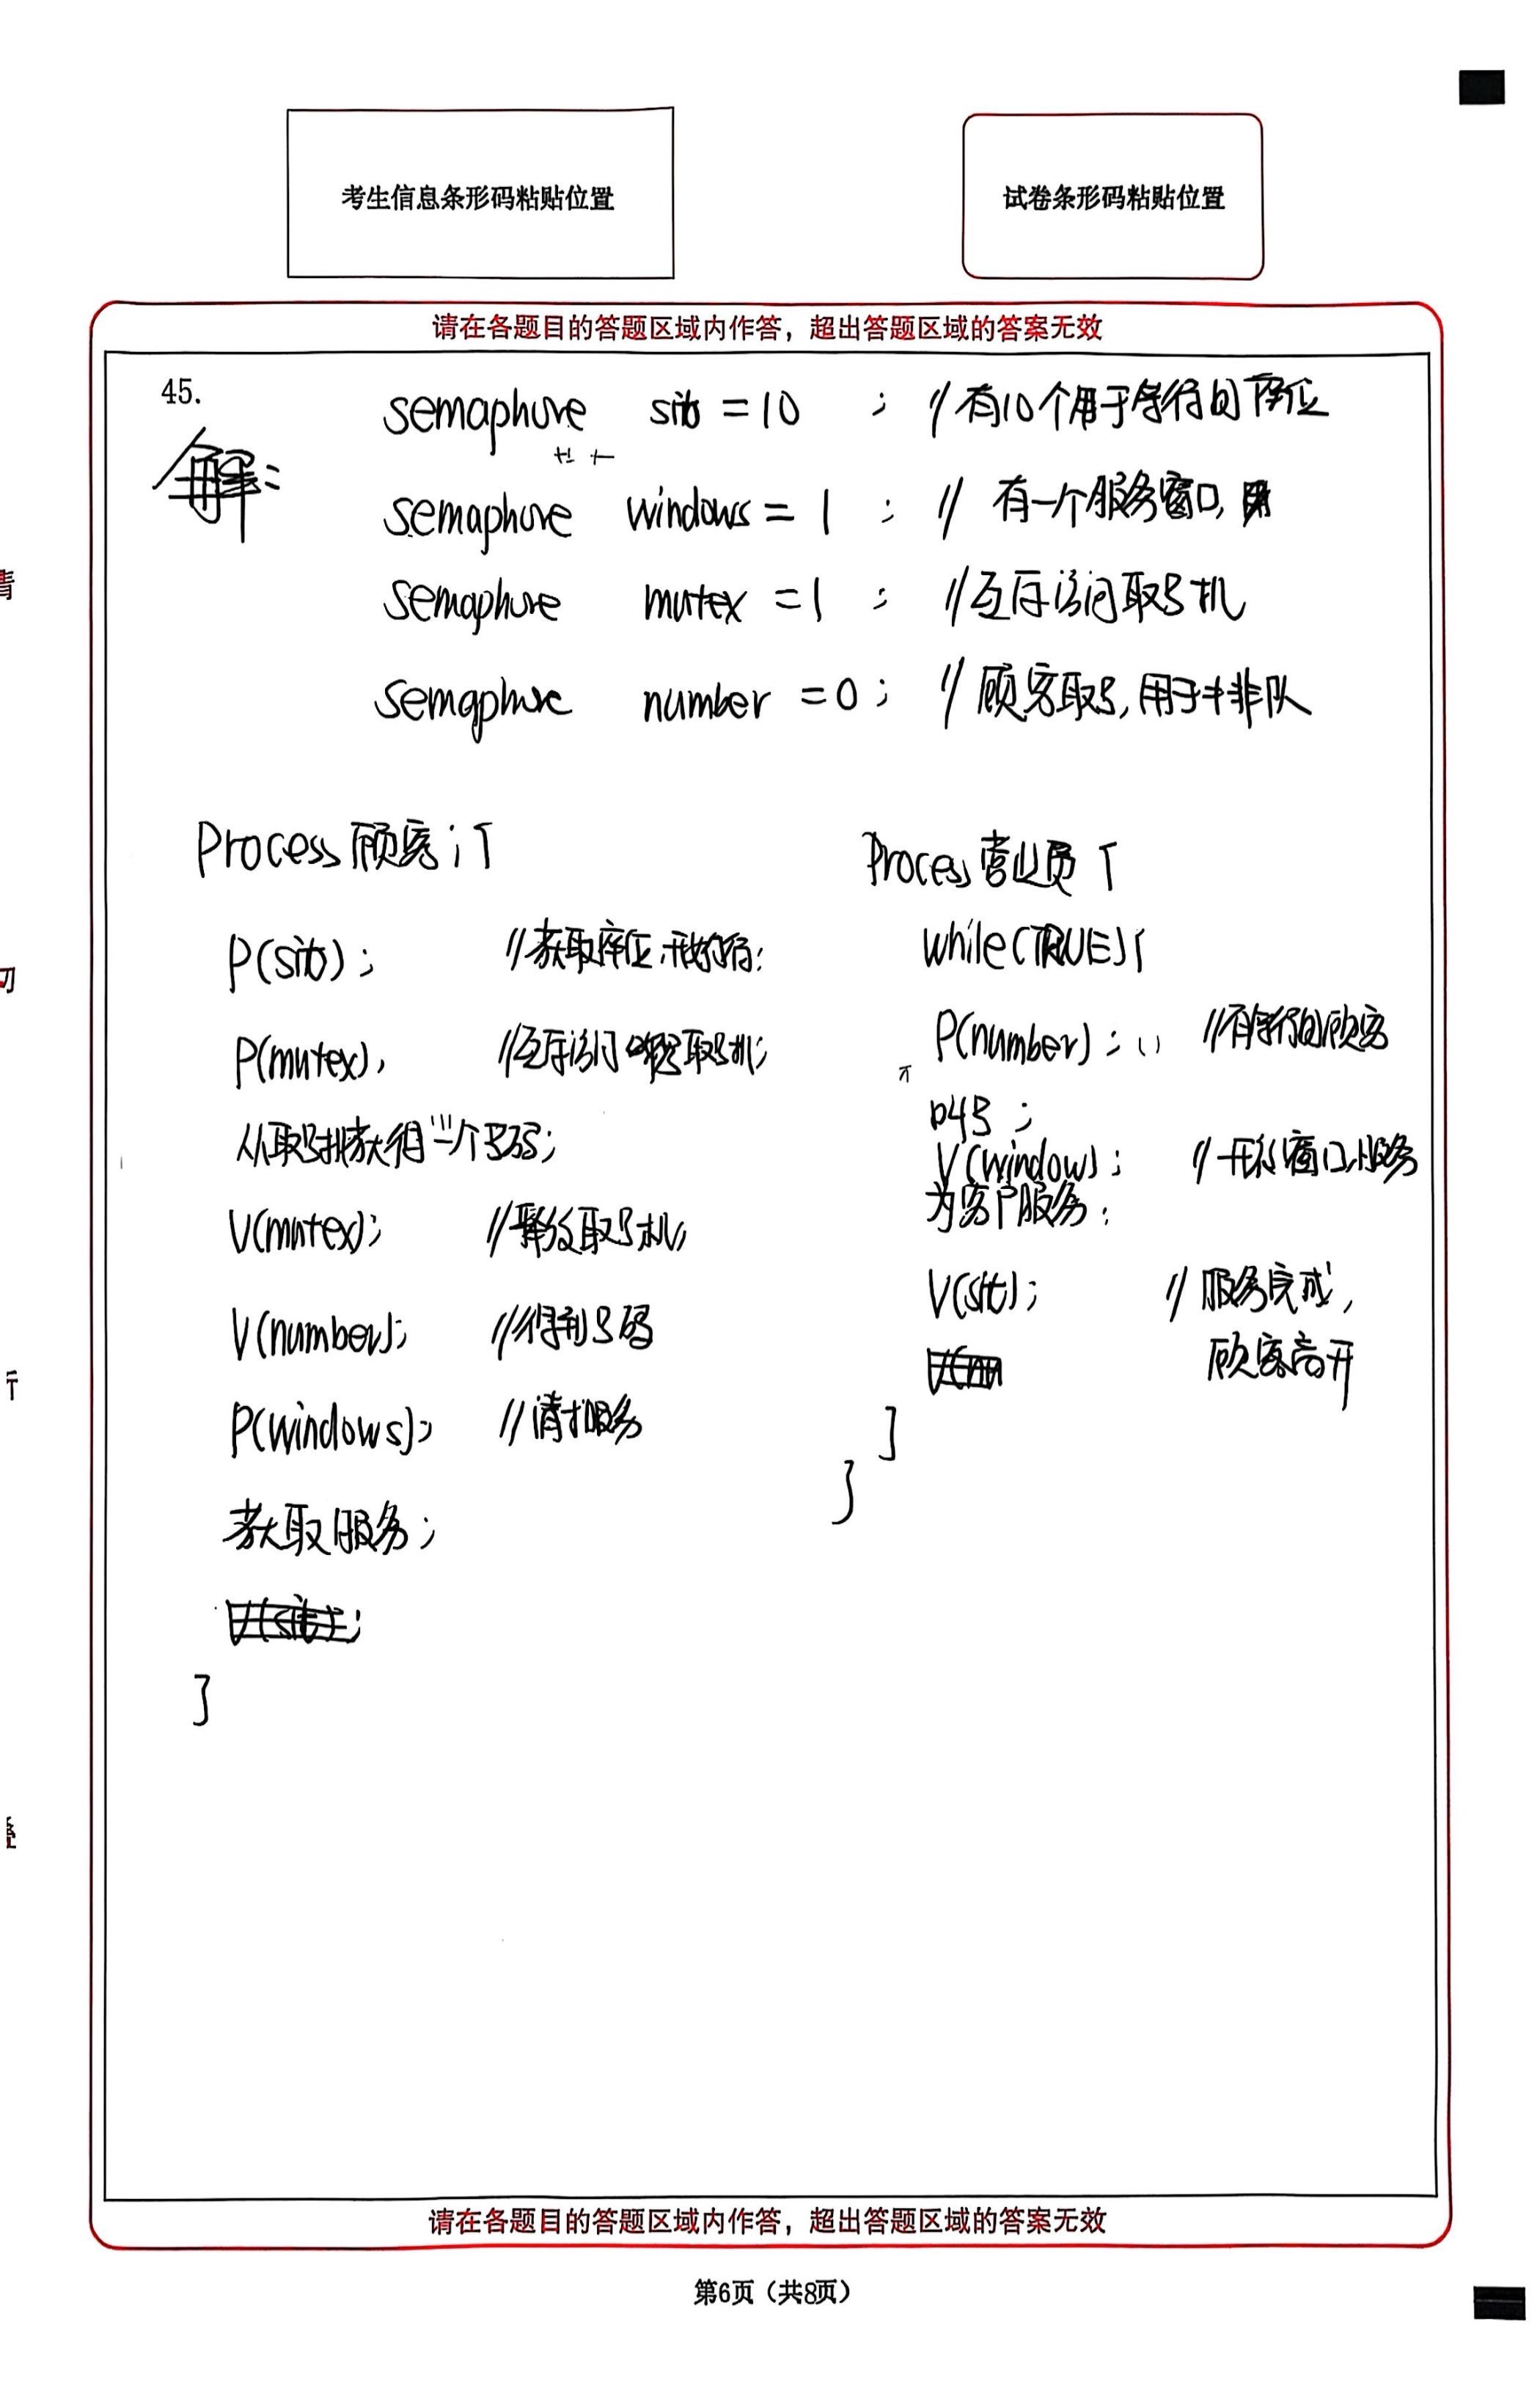 考生信息条形码粘贴位置
试卷条形码粘贴位置
请在各题目的答题区域内作答，超出答题区域的答案无效
45.
解:
semaphore sits = 10 ; // 有10个用于等待的座位
semaphore windows = 1 ; // 有一个服务窗口,
semaphore mutex = 1 ; // 互斥访问取号机
semaphore number = 0 ; // 顾客取号, 用于排队
Process 顾客 i {
P(sits) ; // 获取座位
P(mutex), // 互斥访问 取号机;
从取号机获得一个号码;
V(mutex); // 释放取号机;
V(number); // 得到号码
P(windows); // 请求服务
获取服务;
}
Process 营业员 {
while(TRUE){
P(number) ; // 有等待的顾客
叫号 ;
V(window) ; // 开放窗口服务
为客户服务 ;
V(sit) ; // 服务完成,
顾客离开
}
}
请在各题目的答题区域内作答，超出答题区域的答案无效
第6页（共8页）